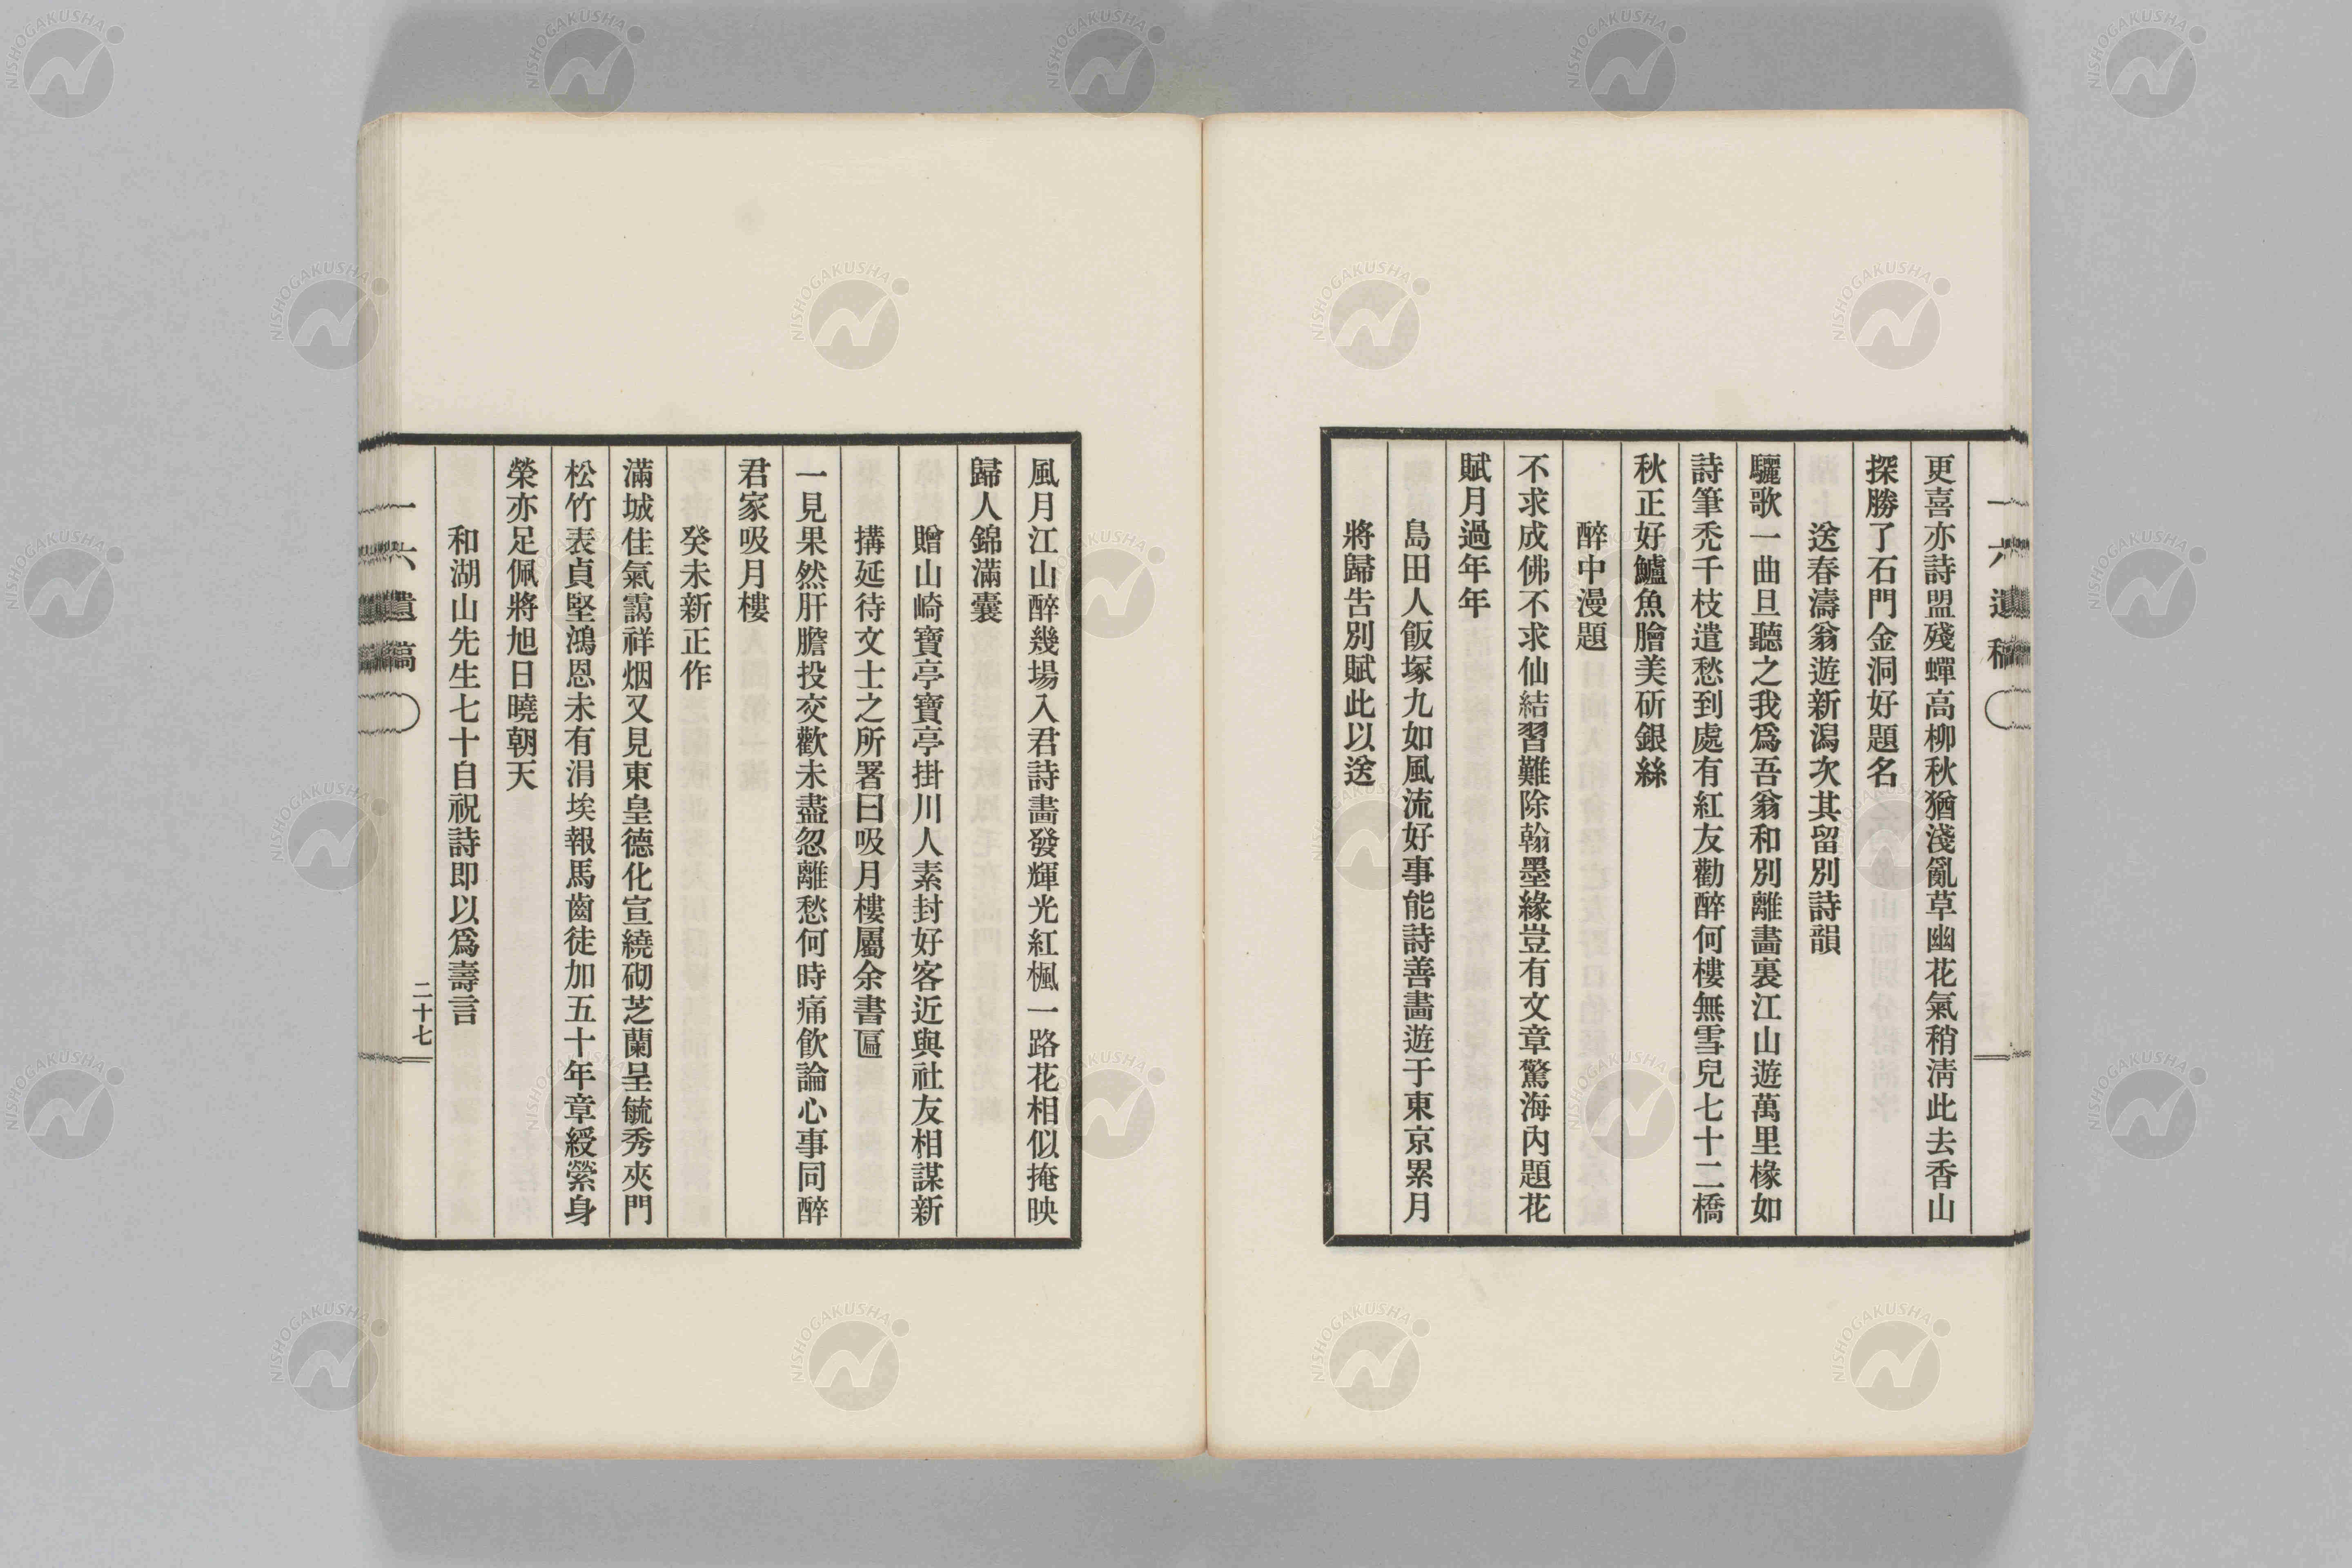 一六遺稿
更喜亦詩盟殘蟬高柳秋猶淺亂草幽花氣稍清此去香山
探勝了石門金洞好題名
送春濤翁遊新潟次其留別詩韻
驪歌一曲且聽之我爲吾翁和別離畫裏江山遊萬里椽如
詩筆禿千枝遣愁到處有紅友勸醉何樓無雪兒七十二橋
秋正好鱸魚膾美斫銀絲
醉中漫題
不求成佛不求仙結習難除翰墨緣豈有文章驚海內題花
賦月過年年
島田人飯塚九如風流好事能詩善畫遊于東京累月
將歸告別賦此以送
風月江山醉幾場入君詩畫發輝光紅楓一路花相似掩映
歸人錦滿囊
贈山崎寶亭寶亭掛川人素封好客近與社友相謀新
搆延待文士之所署曰吸月樓屬余書匾
一見果然肝膽投交歡未盡忽離愁何時痛飲論心事同醉
君家吸月樓
癸未新正作
滿城佳氣靄祥烟又見東皇德化宣繞砌芝蘭呈毓秀夾門
松竹表貞堅鴻恩未有涓埃報馬齒徒加五十年章綬縈身
榮亦足佩將旭日曉朝天
和湖山先生七十自祝詩即以爲壽言
一六遺稿
二十七
NISHOGAKUSHA